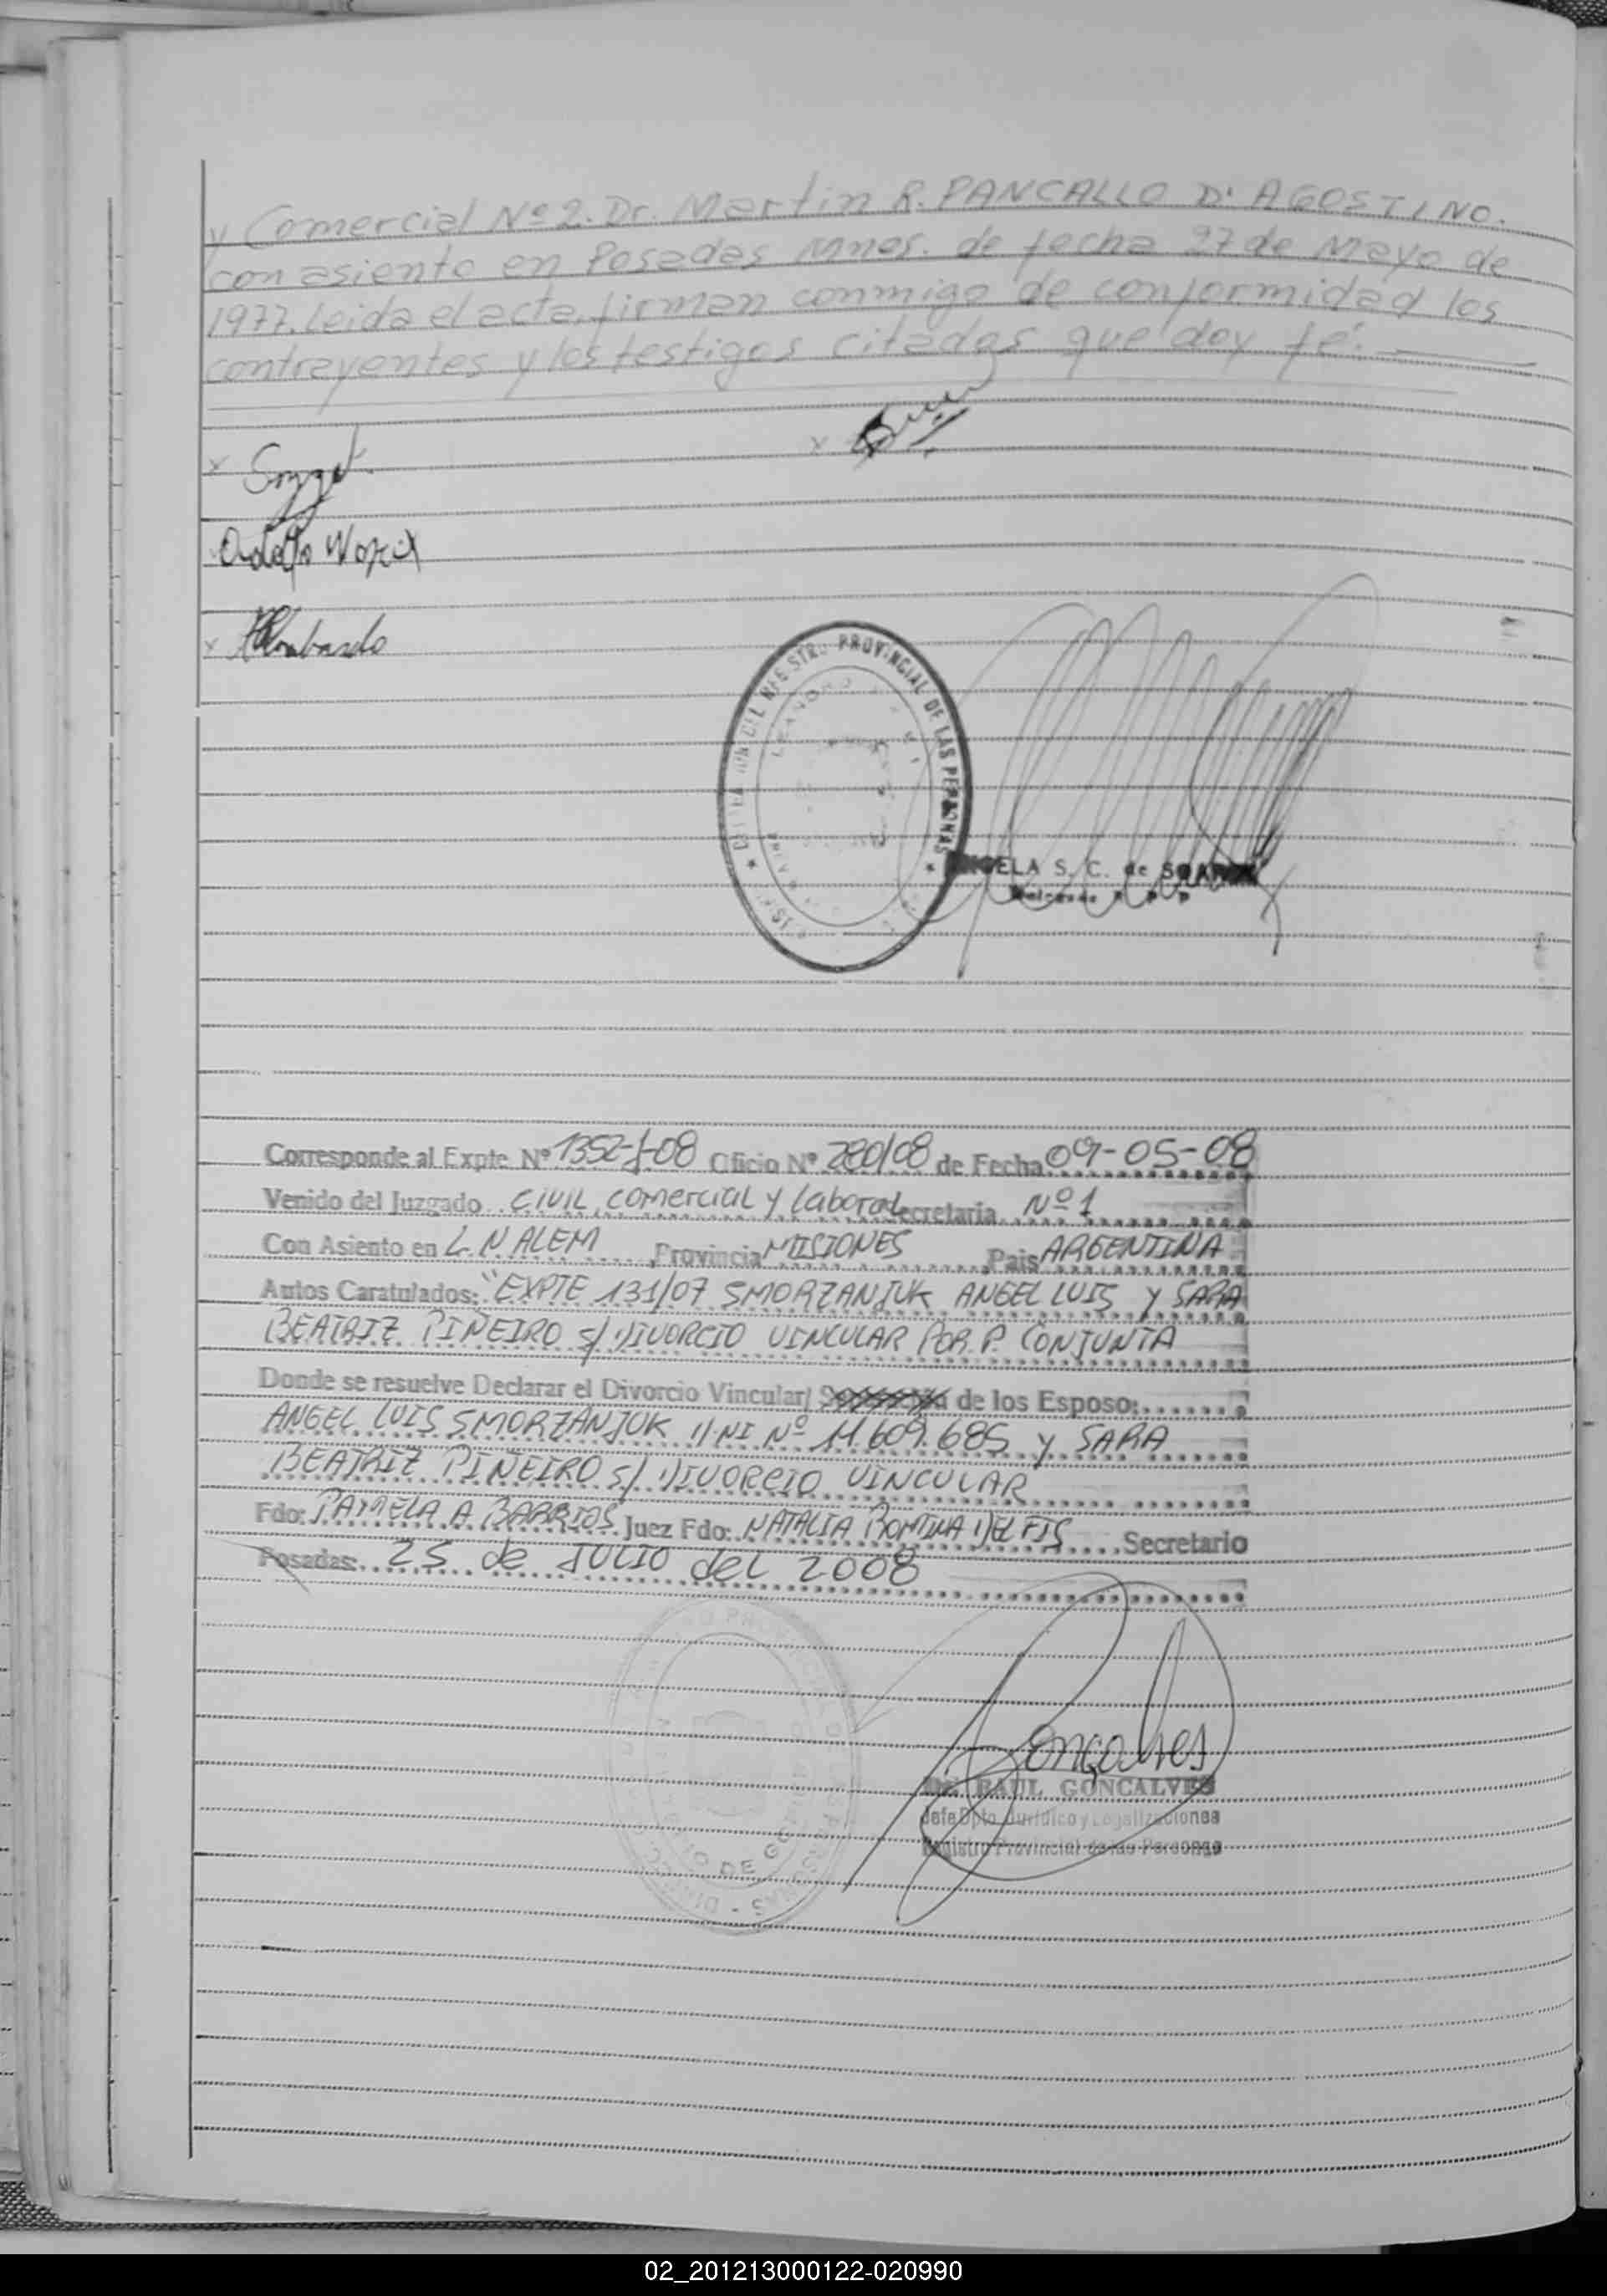 y Comercial Nº 2. Dr. Martin R. PANCALLO D'AGOSTINO.
con asiento en Posadas Mnes. de fecha 27 de Mayo de
1977. Leida el acta, firman conmigo de conformidad los
contrayentes y los testigos citados que doy fé.
PROVINCIAL DE LAS PERSONAS
ANGELA S. C. de
Corresponde al Expte Nº 1352-J-08 Oficio Nº 280/08 de Fecha 09-05-08
Venido del Juzgado CIVIL, comercial y laboral Secretaria Nº 1
Con Asiento en L. N ALEM, Provincia MISIONES Pais ARGENTINA
Autos Caratulados: "EXPTE 131/07 SMORZANJUK ANGEL LUIS Y SARA
BEATRIZ PIÑEIRO s/ DIVORCIO VINCULAR POR P. CONJUNTA
Donde se resuelve Declarar el Divorcio Vincular/ de los Esposo:
ANGEL LUIS SMORZANJUK DNI Nº 11.609.685 y SARA
BEATRIZ PIÑEIRO s/ DIVORCIO VINCULAR
Fdo: PAMELA A BARRIOS Juez Fdo: NATALIA ROMINA DELFIS Secretario
Posadas: 25 de JULIO del 2008
Goncalves
Dr. RAUL GONCALVES
Jefe Dpto. Juridico y Legalizaciones
Registro Provincial de las Personas
02_201213000122-020990